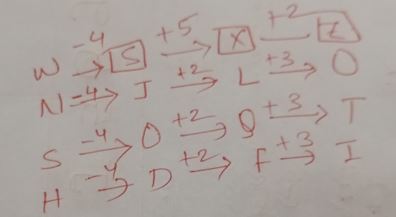 W -4→ S +5→ X +2 Z
N -4→ J +2→ L +3→ O
S -4→ O +2→ Q +3→ T
H -4→ D +2→ F +3→ I